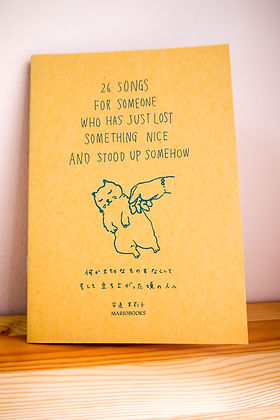 26 SONGS
FOR SOMEONE
WHO HAS JUST LOST
SOMETHING NICE
AND STOOD UP SOMEHOW
何か大切なものをなくして
そして立ち上がった頃の人へ
MARIOBOOKS